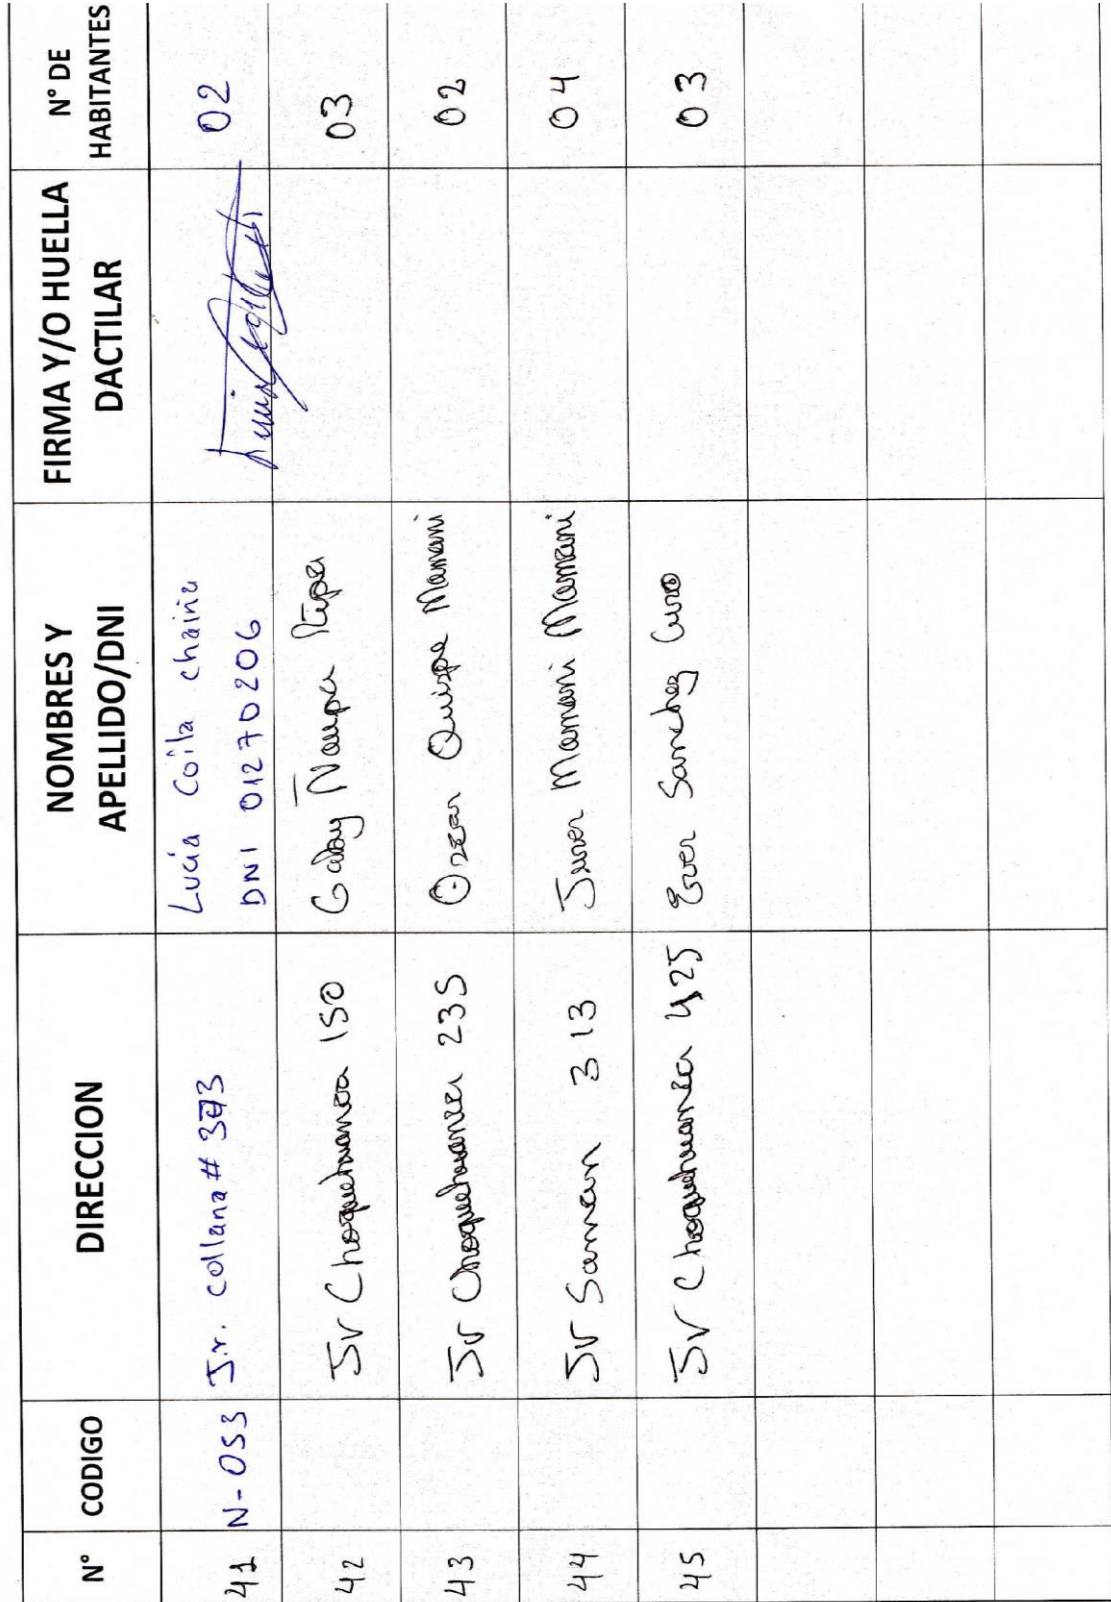 N° CODIGO DIRECCION NOMBRES Y APELLIDO/DNI FIRMA Y/O HUELLA DACTILAR N° DE HABITANTES
41 N-053 Jr. collana # 373 Lucía Coila chaiña DNI 01270206 02
42 Jr Choquehuanca 150 Gaby Ñaupa 03
43 Jr Choquehuanca 235 Quispe Mamani 02
44 Jr Saman 313 Juner Mamani Mamani 04
45 Jr Choquehuanca 425 Ever Sanchez Curo 03